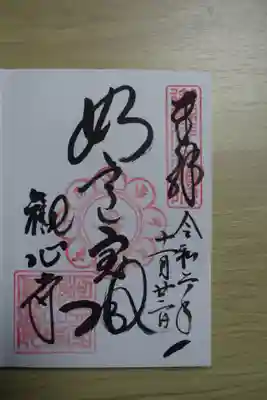 奉拝
令和六年
十一月廿二日
如意宝
観心寺